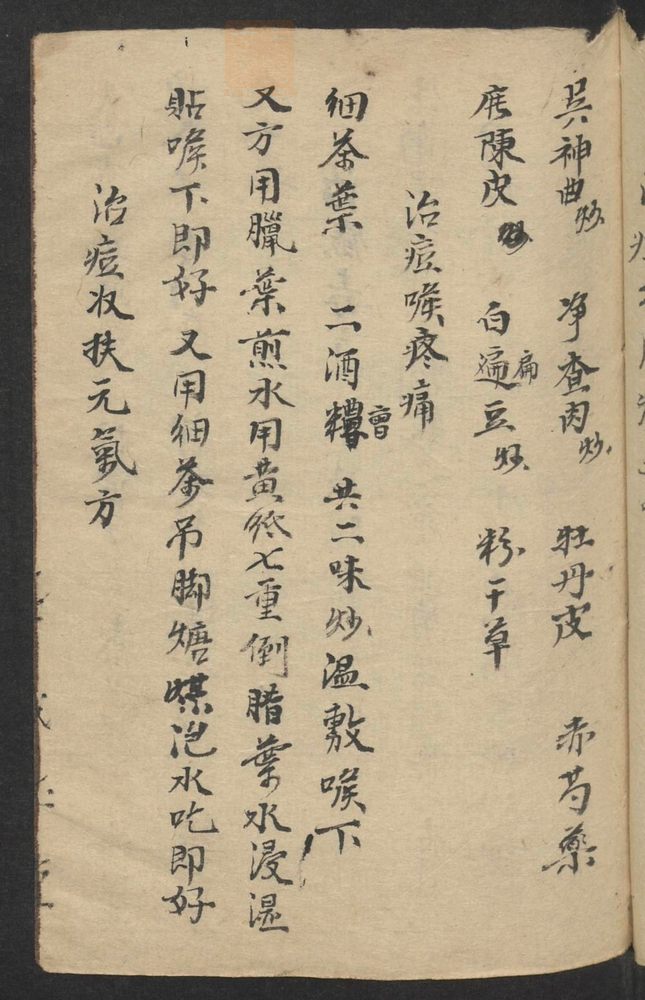 吳神曲炒 净查肉炒 牡丹皮 赤芍藥
陳皮炒 白遍扁豆炒 粉干草
治痘喉疼痛
細茶葉 二酒糟曹 共二味炒溫敷喉下
又方用臘葉煎水用黄紙七重倒腊葉水浸濕
貼喉下即好 又用細茶吊脚煻煤泡水吃即好
治痘收扶元氣方